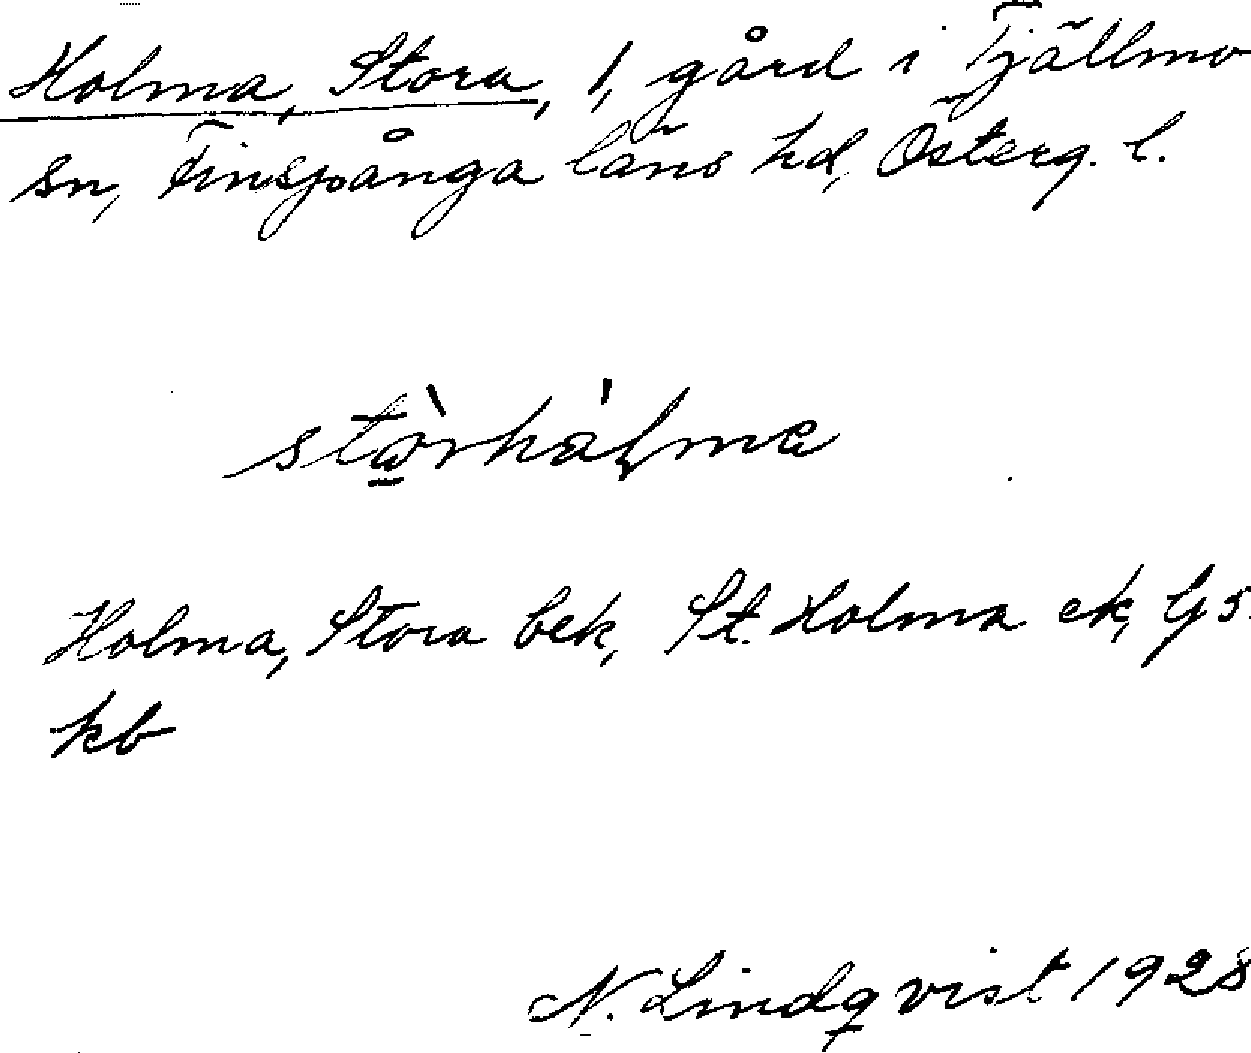 Holma, Stora, 1, gård i Tjällmo
sn, Finspånga läns hd, Österg. l.
Holma, Stora bek, St. Holma ek, Gs.
kb
N. Lindqvist 1928